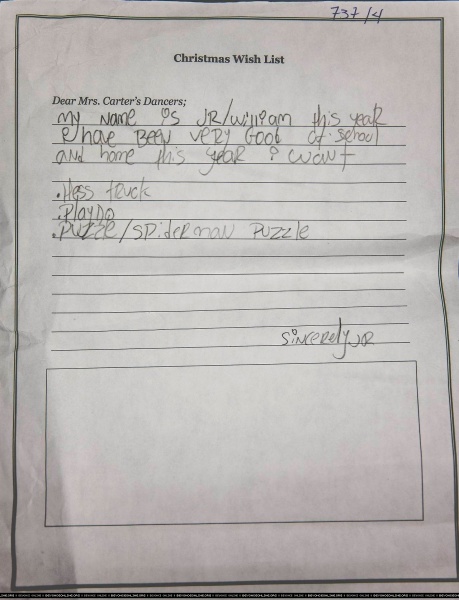 737/4
Christmas Wish List
Dear Mrs. Carter's Dancers;
my name is JR/william this year
I have Been very Good at school
and home this year i want
.Hess truck
.PlayDo
.PUZZLE/SPiderman PUZZLE
Sincerely JR